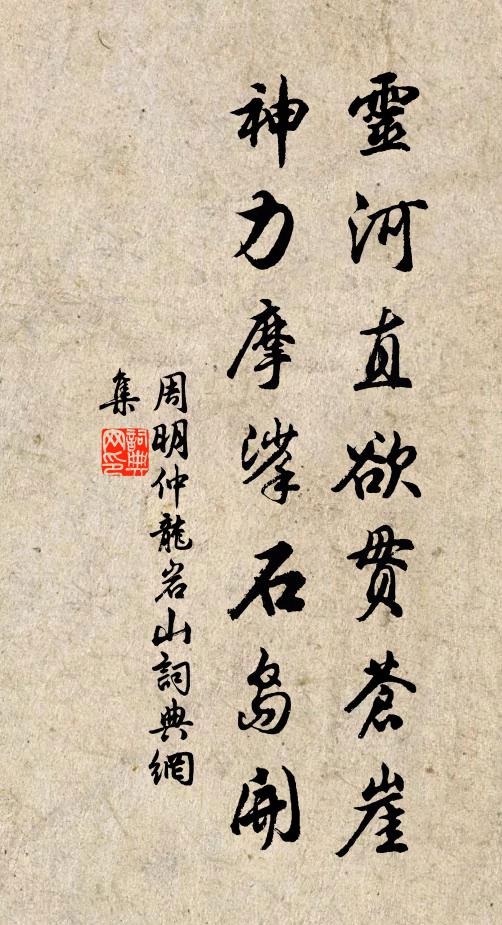 靈河直欲貫蒼崖
神力摩挲石島開
周明仲龍岩山詞典網
集
詞典網印